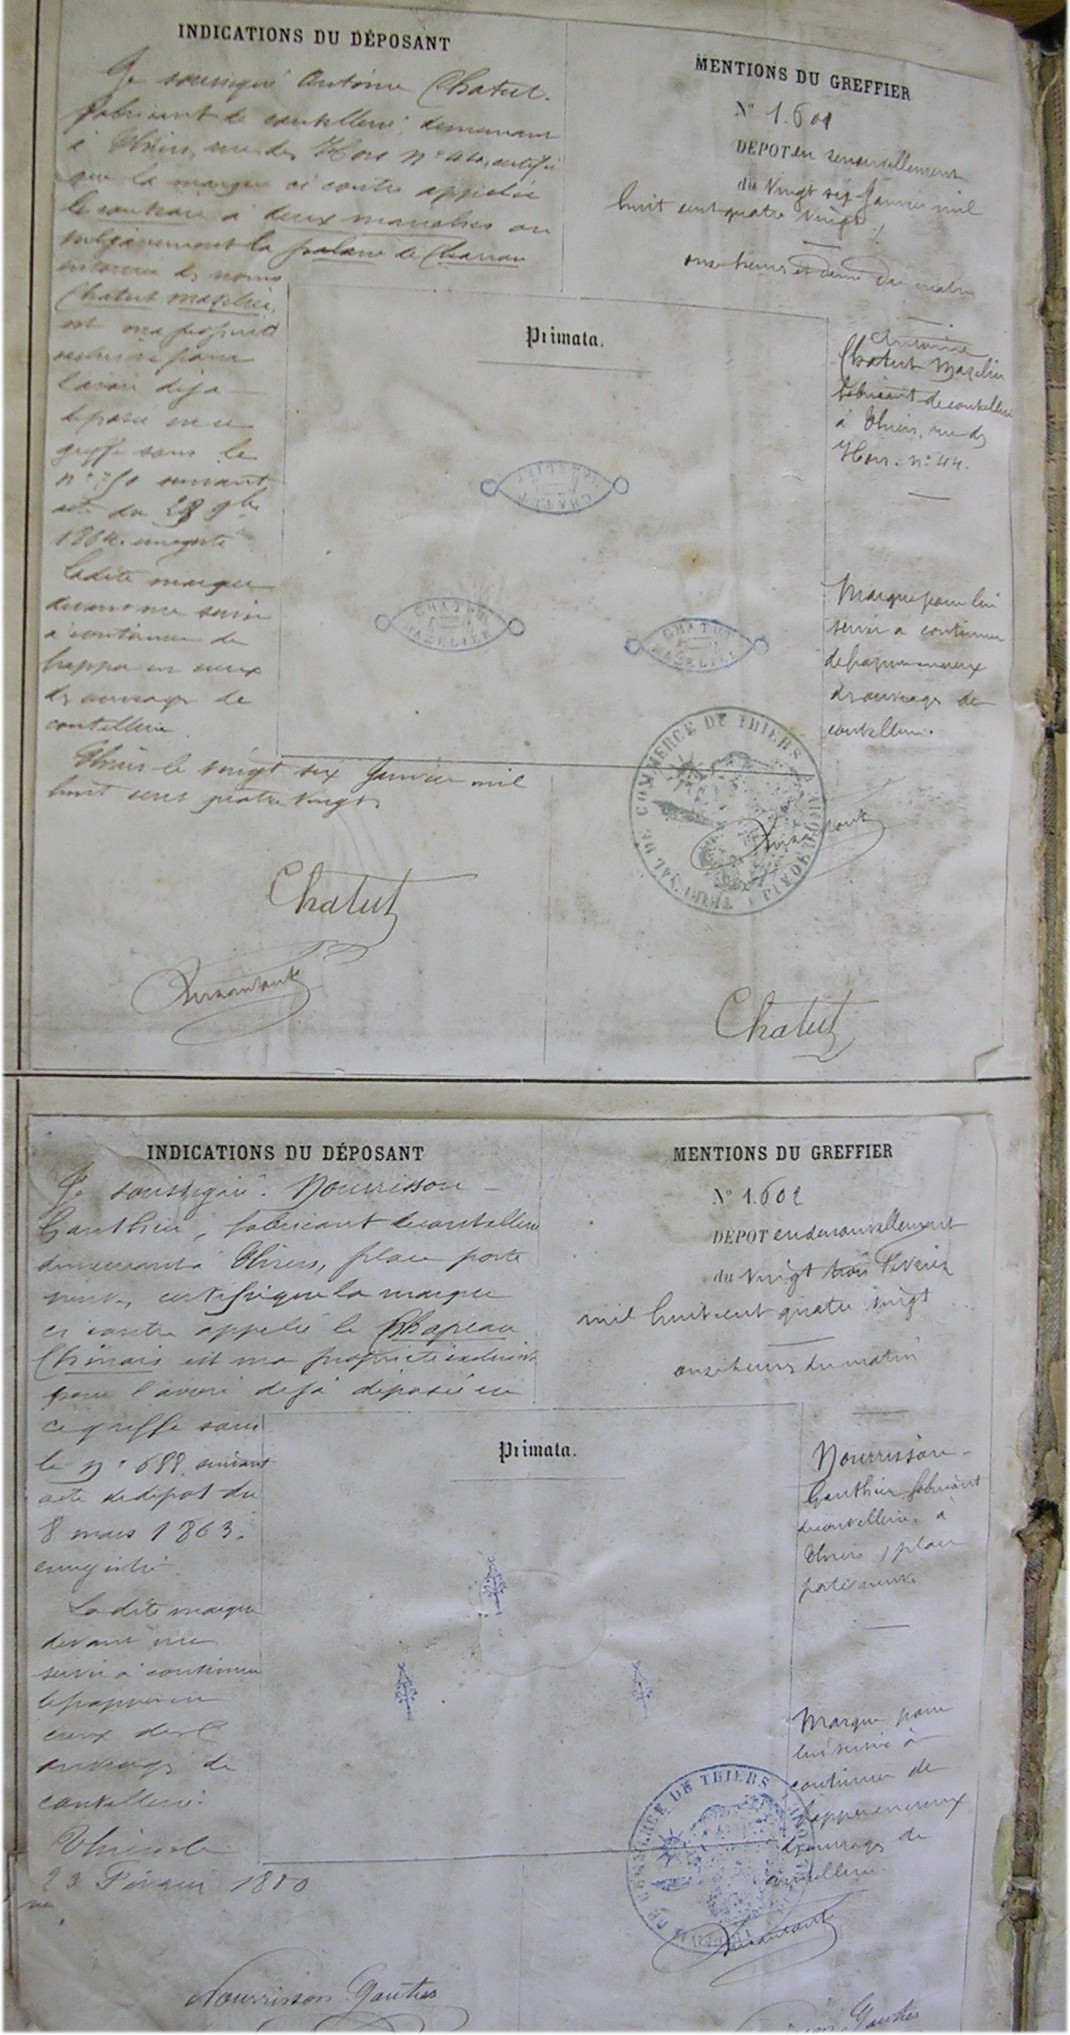 INDICATIONS DU DÉPOSANT
Je soussigné Antoine Chatut.
fabricant de coutellerie, demeurant
à Thiers, rue des Hors n° 44, certifie
que la marque ci contre appelée
à deux manches ou
vulgairement la de Charron
entourée des noms
Chatut Mazelier,
est ma propriété
exclusive pour
l'avoir déja
déposée en ce
greffe sous le
n° suivant
acte du 28 9bre
1864. enregistré
Ladite marque
devant me servir
à continuer de
frapper en creux
des ouvrages de
coutellerie.
Thiers le vingt six Janvier mil
huit cent quatre vingt
Chatut
MENTIONS DU GREFFIER
N° 1.601
DÉPOT en renouvellement
du vingt six Janvier mil
huit cent quatre vingt.
onze heures et demie du matin
Antoine
Chatut Mazelier
fabricant de coutellerie
à Thiers, rue des
Hors. n° 44.
Marque pour lui
servir a continuer
de frapper en creux
des ouvrages de
coutellerie.
Primata.
CHATUT
MAZELIER
CHATUT
MAZELIER
CHATUT
MAZELIER
TRIBUNAL DE COMMERCE DE THIERS
Chatut
INDICATIONS DU DÉPOSANT
Je soussigné. Nourrisson-
Gauthier, fabricant de coutellerie
demeurant à Thiers, place porte
neuve, certifie que la marque
ci contre appelée le Chapeau
Chinois est ma propriété exclusive
pour l'avoir déjà déposée en
ce greffe sous
le n° 688 suivant
acte de dépot du
8 mars 1863.
enregistré.
Ladite marque
devant me
servir à continuer
de frapper en
creux des
ouvrages de
coutellerie.
Thiers le
23 Février 1880
Nourrisson Gauthier
MENTIONS DU GREFFIER
N° 1.602
DÉPOT en renouvellement
du vingt trois Février
mil huit cent quatre vingt
onze heures du matin
Nourrisson-
Gauthier fabricant
de coutellerie, à
Thiers, place
porte neuve
Marque pour
lui servir à
continuer de
frapper en creux
des ouvrages de
coutellerie.
Primata.
DE COMMERCE DE THIERS
Gauthier